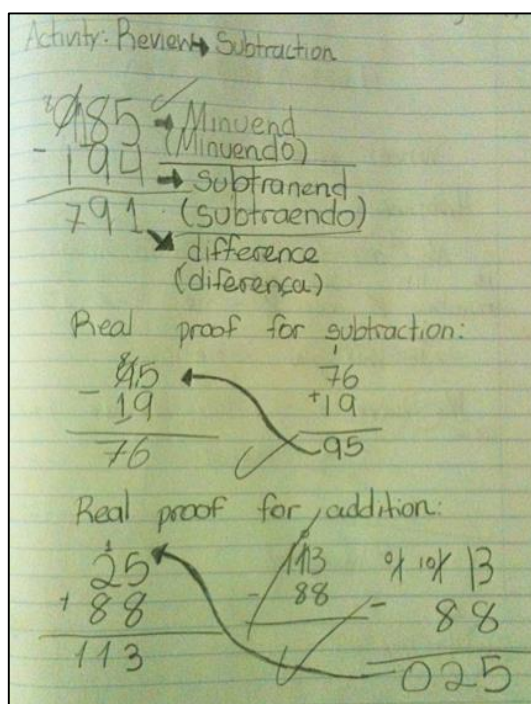 Activity: Review → Subtraction
985 → Minuend
(Minuendo)
- 194 → Subtranend
791 (subtraendo)
difference
(diferença)
Real proof for subtraction:
95 76
- 19 + 19
76 95
Real proof for addition:
25 113 13
+ 88 - 88 - 88
113 025